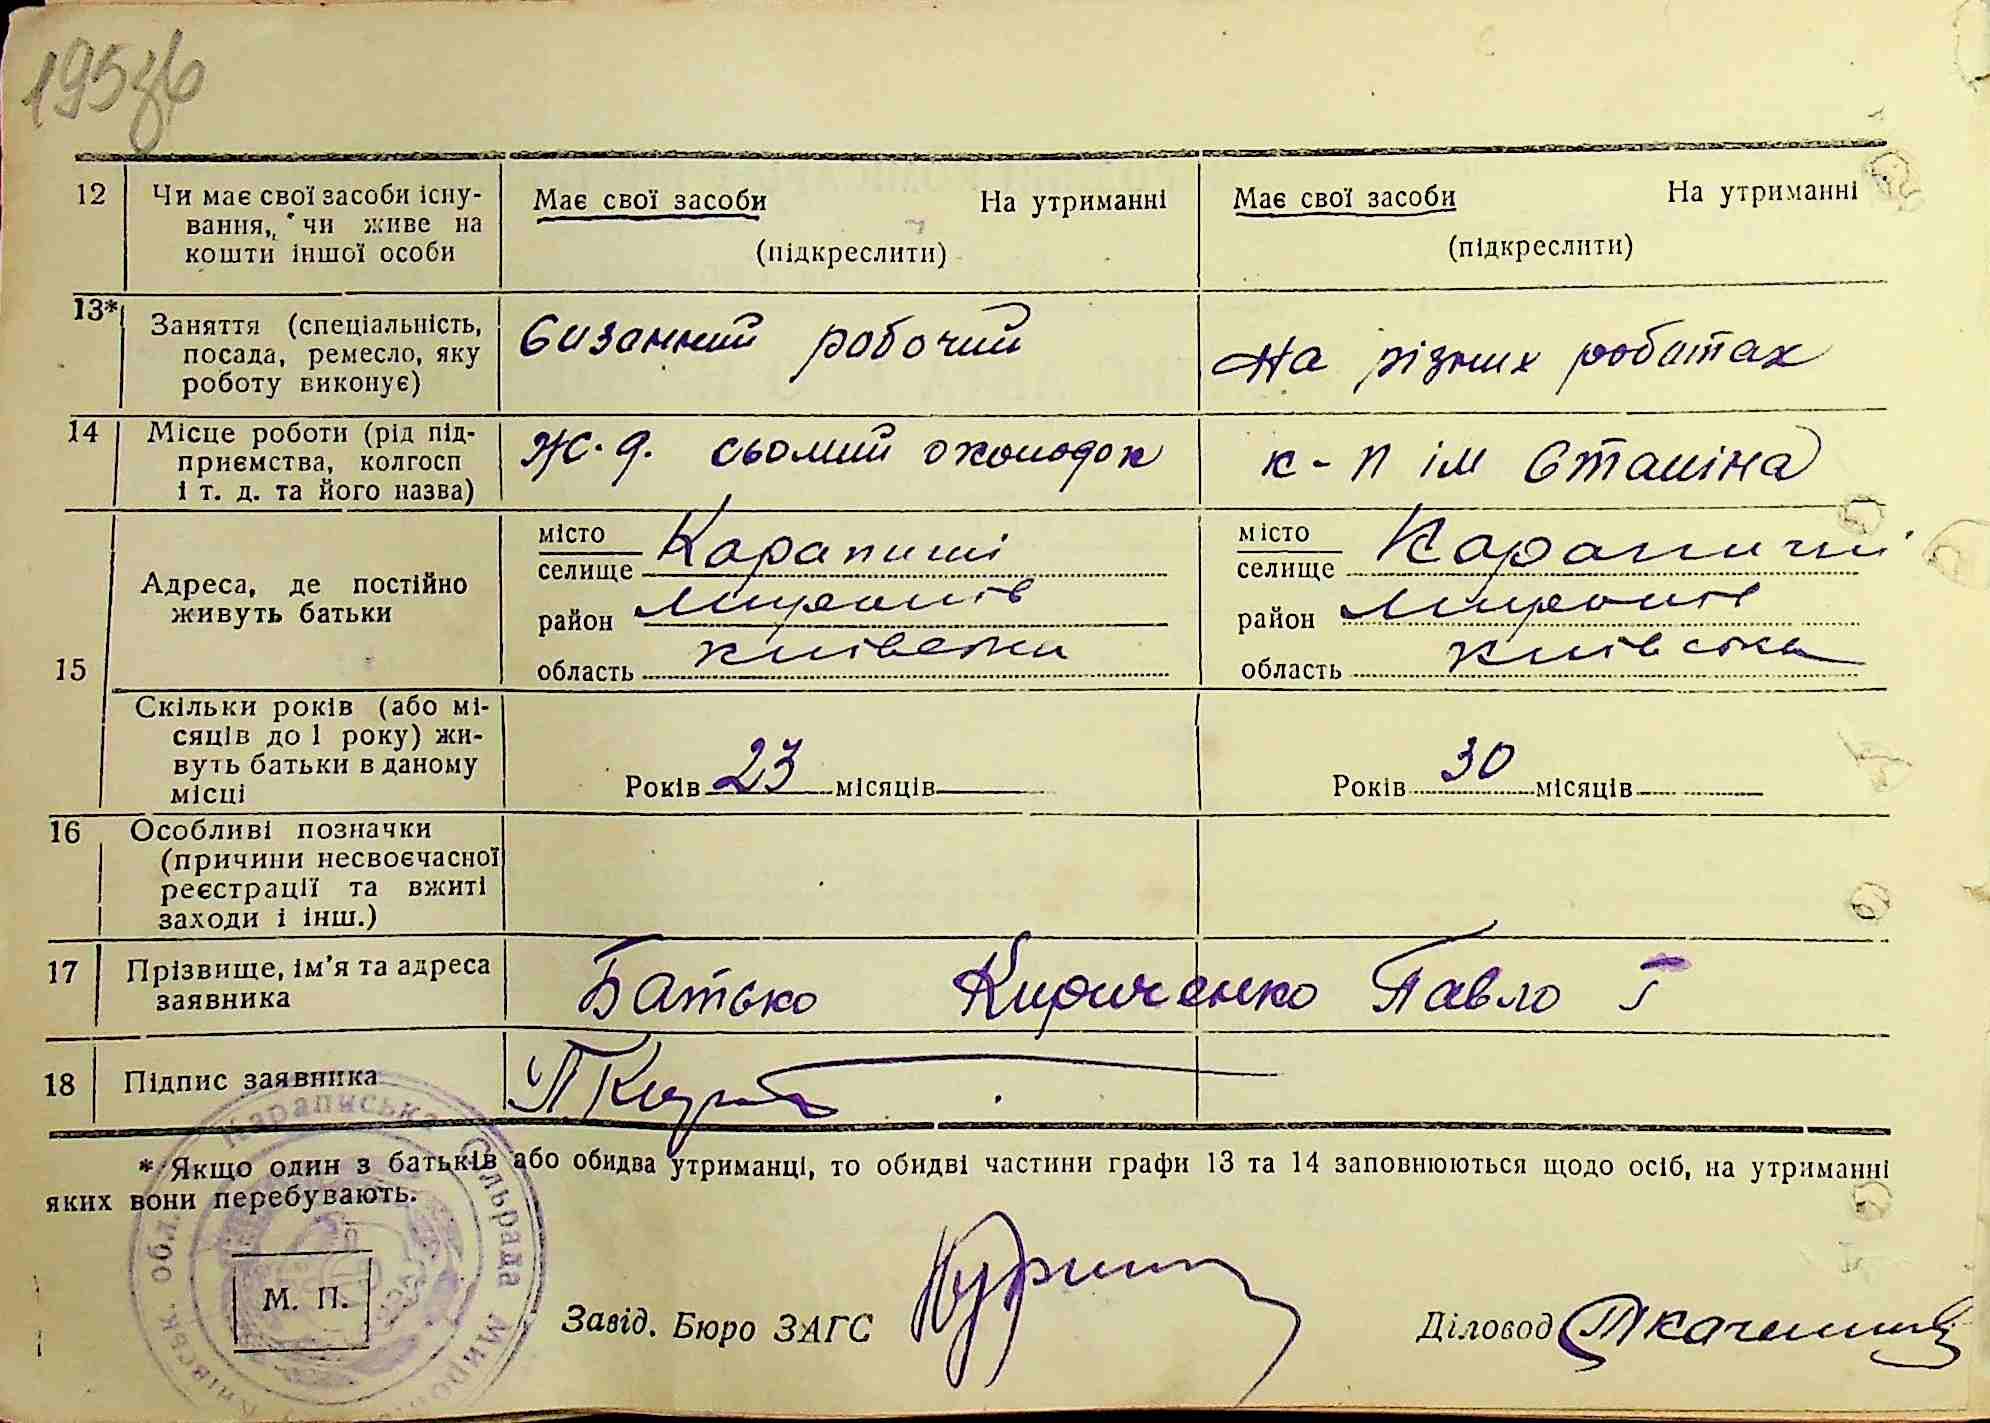 12 Чи має свої засоби існу-
вання, чи живе на
кошти іншої особи
Має свої засоби На утриманні
(підкреслити)
Має свої засоби На утриманні
(підкреслити)
13* Заняття (спеціальність,
посада, ремесло, яку
роботу виконує)
робочий
На різних роботах
14 Місце роботи (рід під-
приємства, колгосп
і т. д. та його назва)
Ж. д. сьомий околодок
к-п ім Сталіна
15 Адреса, де постійно
живуть батьки
місто
селище Карапиші
район Миронів
область київська
місто
селище Карапиші
район Миронів
область київська
Скільки років (або мі-
сяців до 1 року) жи-
вуть батьки в даному
місці
Років 23 місяців
Років 30 місяців
16 Особливі позначки
(причини несвоєчасної
реєстрації та вжиті
заходи і інш.)
17 Прізвище, ім'я та адреса
заявника
Батько Кириченко Павло Г
18 Підпис заявника
* Якщо один з батьків або обидва утриманці, то обидві частини графи 13 та 14 заповнюються щодо осіб, на утриманні
яких вони перебувають.
М. П.
Завід. Бюро ЗАГС
Діловод